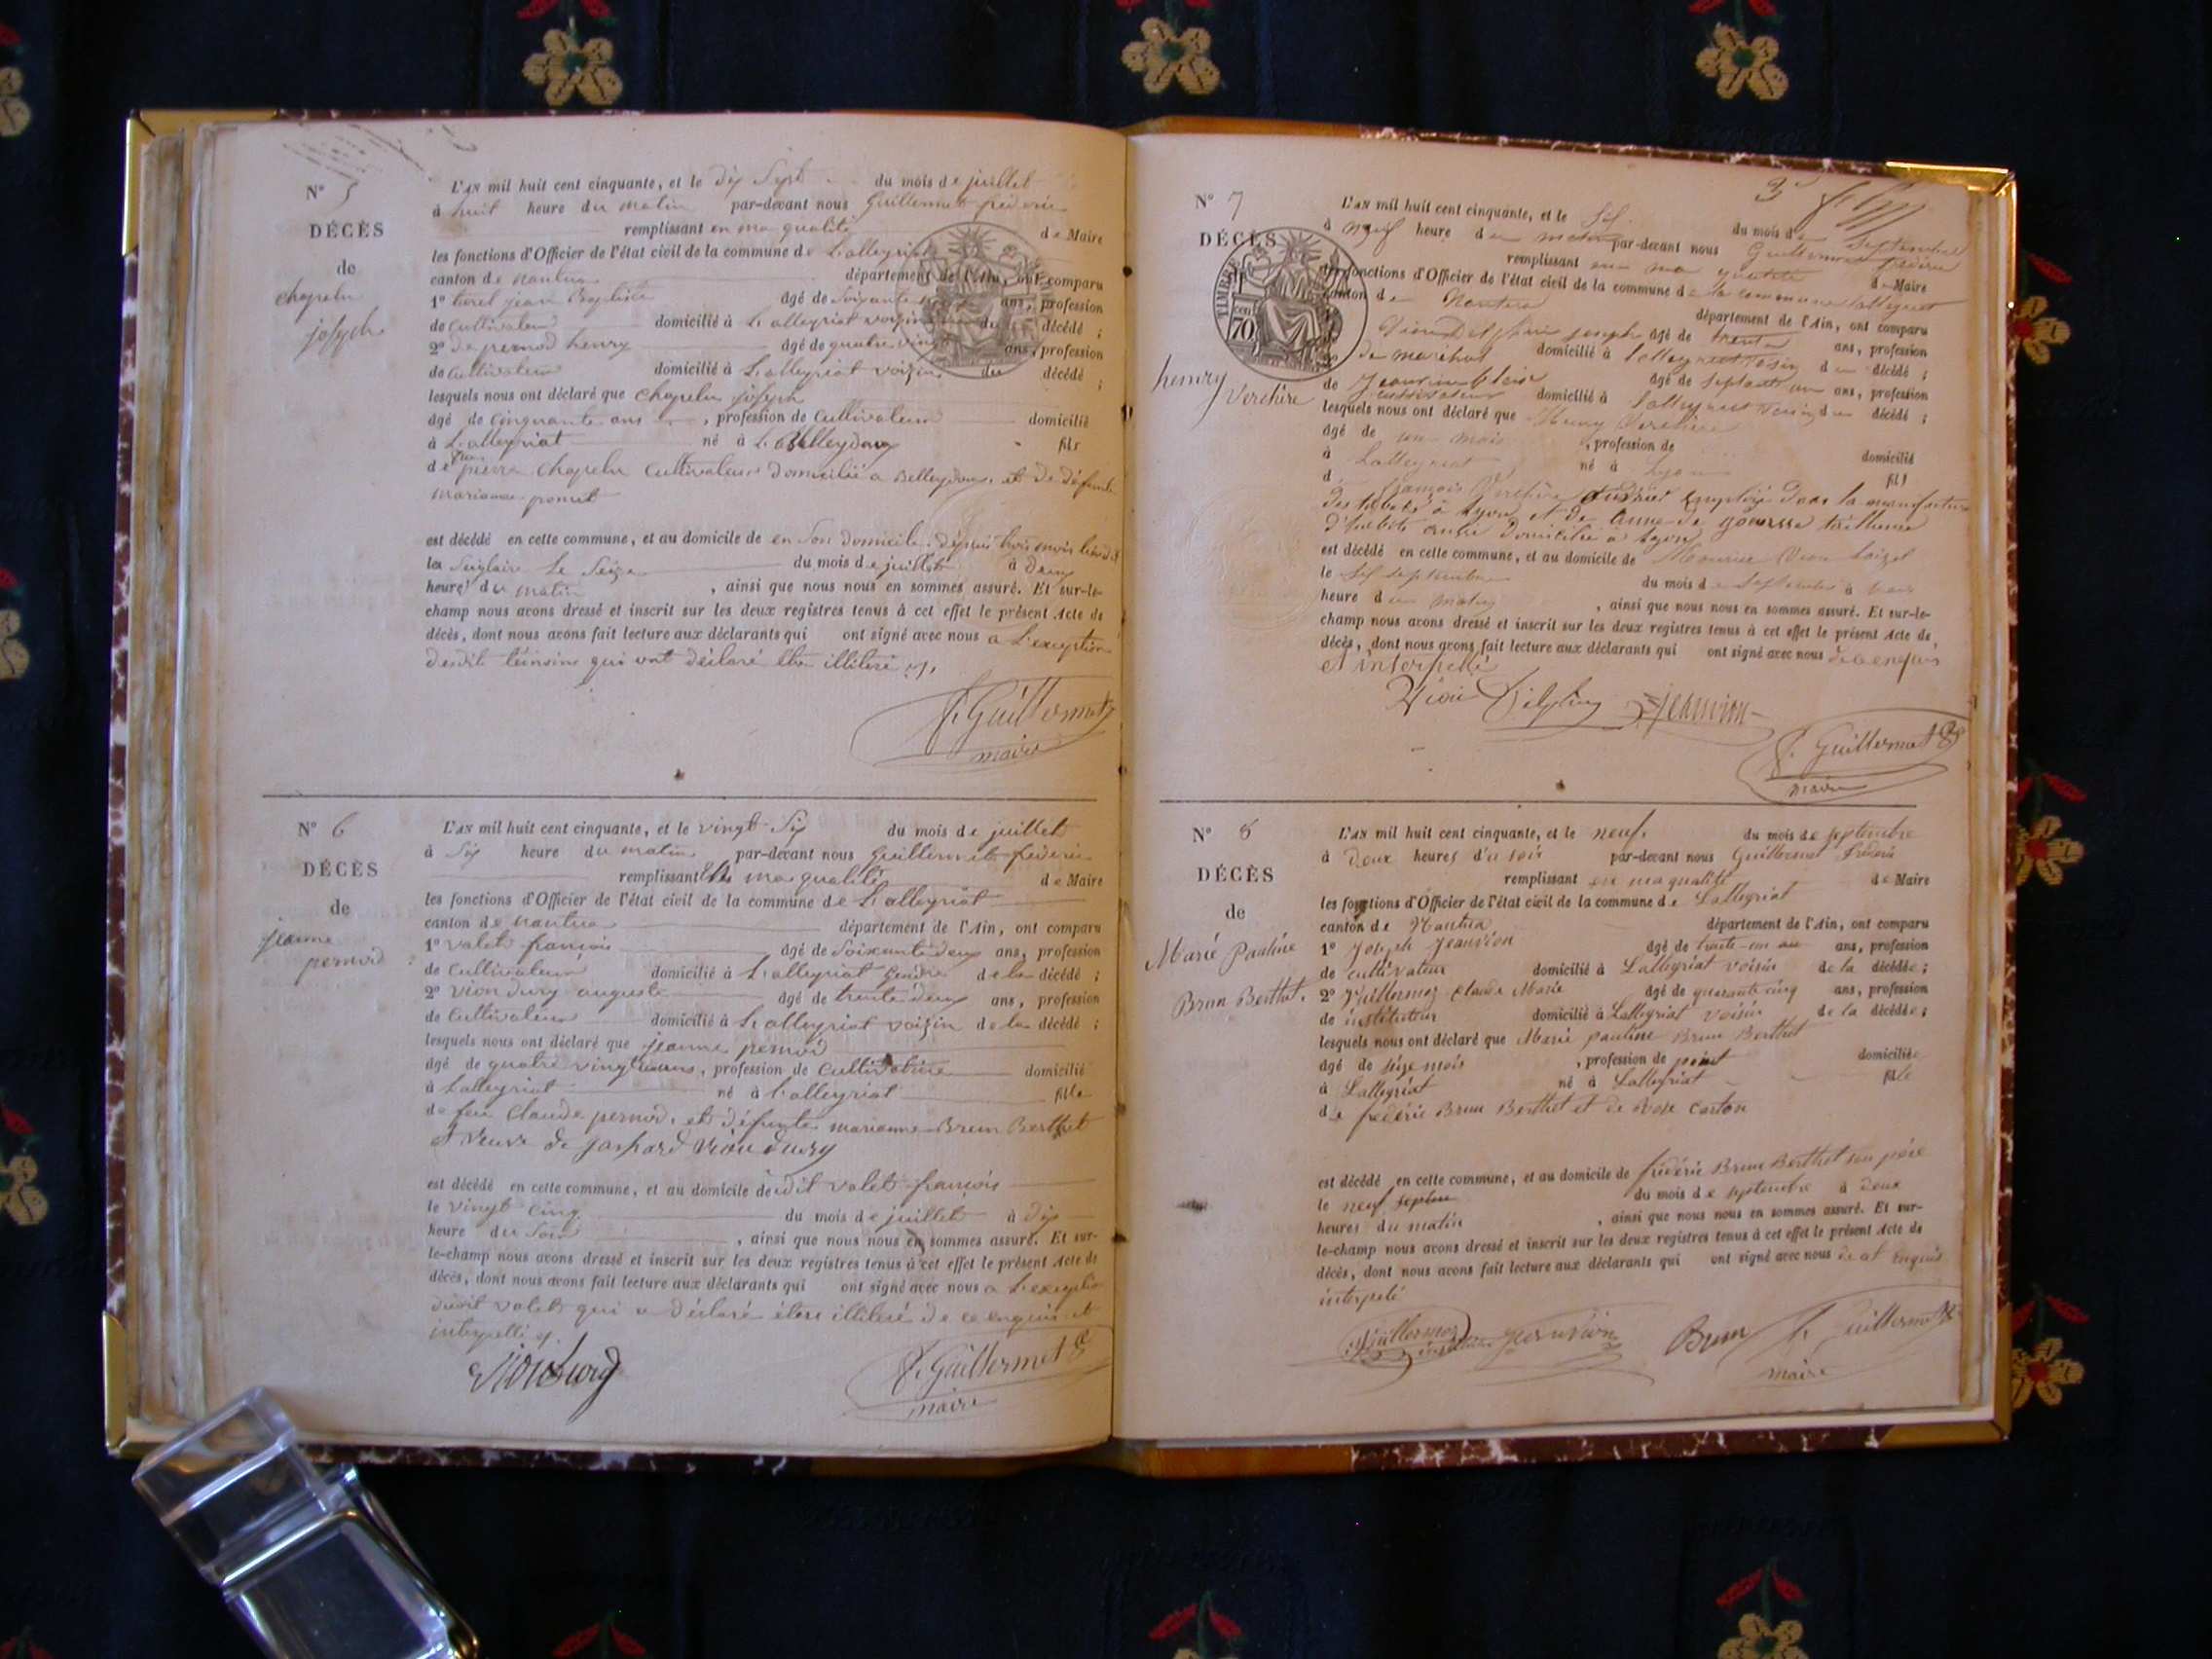 N° 5
DÉCÈS
de
chapelu
joseph
L'AN mil huit cent cinquante, et le dix Sept du mois de juillet
à huit heure du matin par-devant nous Guillermet frédéric
remplissant en ma qualité de Maire
les fonctions d'Officier de l'état civil de la commune de Lalleyriat
canton de nantua département de l'Ain, ont comparu
1° jean Baptiste âgé de Soixante ans, profession
de Cultivateur domicilié à Lalleyriat voizin du décédé ;
2° de pernod henry âgé de quatre vingt ans, profession
de Cultivateur domicilié à Lalleyriat voizin du décédé ;
lesquels nous ont déclaré que chapelu joseph
âgé de cinquante ans , profession de Cultivateur domicilié
à Lalleyriat né à Belleydoux fils
de pierre chapelu Cultivateur domicilié a Belleydoux et de défunte
marianne poncet
est décédé en cette commune, et au domicile de en Son domicile depuis trois mois
le Seize du mois de juillet à deux
heure du matin , ainsi que nous nous en sommes assuré. Et sur-le-
champ nous avons dressé et inscrit sur les deux registres tenus à cet effet le présent Acte de
décès, dont nous avons fait lecture aux déclarants qui ont signé avec nous a L'exception
desdit témoins qui ont déclaré être illiteré
f. Guillermet
maire
N° 6
DÉCÈS
de
jeanne
pernod
L'AN mil huit cent cinquante, et le vingt Six du mois de juillet
à Six heure du matin par-devant nous Guillermet frédéric
remplissant en ma qualité de Maire
les fonctions d'Officier de l'état civil de la commune de Lalleyriat
canton de nantua département de l'Ain, ont comparu
1° valet françois âgé de Soixante deux ans, profession
de Cultivateur domicilié à Lalleyriat gendre de la décédé ;
2° vion dury auguste âgé de trente deux ans, profession
de Cultivateur domicilié à Lalleyriat voizin de la décédé ;
lesquels nous ont déclaré que jeanne pernod
âgé de quatre vingt ans, profession de Cultivatrice domicilié
à Lalleyriat né à Lalleyriat fille
de feu Claude pernod, et défunte marianne Brun Berthet
et veuve de jaspard vion dury
est décédé en cette commune, et au domicile dudit valet françois
le vingt cinq du mois de juillet à dix
heure du Soir , ainsi que nous nous en sommes assuré. Et sur-
le-champ nous avons dressé et inscrit sur les deux registres tenus à cet effet le présent Acte de
décès, dont nous avons fait lecture aux déclarants qui ont signé avec nous a L'exception
dudit valet qui a déclaré être illiteré de ce enquis et
interpellé
viondury
f. Guillermet
maire
N° 7
DÉCÈS
henry
Verchère
TIMBRE
70
L'AN mil huit cent cinquante, et le Six du mois de Septembre
à neuf heure du matin par-devant nous Guillermet frédéric
remplissant en ma qualité de Maire
les fonctions d'Officier de l'état civil de la commune de la commune Lalleyriat
canton de Nantua département de l'Ain, ont comparu
joseph âgé de trente ans, profession
de maréchal domicilié à Lalleyriat voisin du décédé ;
âgé de septante un ans, profession
de domicilié à Lalleyriat voisin du décédé ;
lesquels nous ont déclaré que Henry Verchère
âgé de un mois , profession de domicilié
à Lalleyriat né à Lyon fils
de françois Verchère employé dans la manufacture
des tabacs à Lyon et de anne tailleuse
domiciliée à Lyon
est décédé en cette commune, et au domicile de Maurice Vion
le six septembre du mois de septembre à
heure du matin , ainsi que nous nous en sommes assuré. Et sur-le-
champ nous avons dressé et inscrit sur les deux registres tenus à cet effet le présent Acte de
décès, dont nous avons fait lecture aux déclarants qui ont signé avec nous de ce enquis
et interpellé
Vion Delphin Jeanvion
f. Guillermet
maire
N° 8
DÉCÈS
de
Marie Pauline
Brun Berthet.
L'AN mil huit cent cinquante, et le neuf. du mois de septembre
à deux heures du soir par-devant nous Guillermet frédéric
remplissant en ma qualité de Maire
les fonctions d'Officier de l'état civil de la commune de Lalleyriat
canton de Nantua département de l'Ain, ont comparu
1° Joseph Jeanvion âgé de trente-un ans ans, profession
de cultivateur domicilié à Lalleyriat voisin de la décédée ;
2° Vuillermoz Claude Marie âgé de quarante cinq ans, profession
de instituteur domicilié à Lalleyriat voisin de la décédée ;
lesquels nous ont déclaré que Marie pauline Brun Berthet
âgé de seize mois , profession de point domiciliée
à Lalleyriat né à Lalleyriat fille
de frédéric Brun Berthet et de Rose Carton
est décédé en cette commune, et au domicile de frédéric Brun Berthet son père
le neuf septbre du mois de septembre à deux
heures du matin , ainsi que nous nous en sommes assuré. Et sur-
le-champ nous avons dressé et inscrit sur les deux registres tenus à cet effet le présent Acte de
décès, dont nous avons fait lecture aux déclarants qui ont signé avec nous de ce enquis
interpelé
Vuillermoz instituteur Jeanvion Brun f. Guillermet
maire